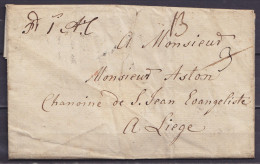 13
A Monsieur
Monsieur Aston
Chanoine de S. Jean Evangeliste
A Liege